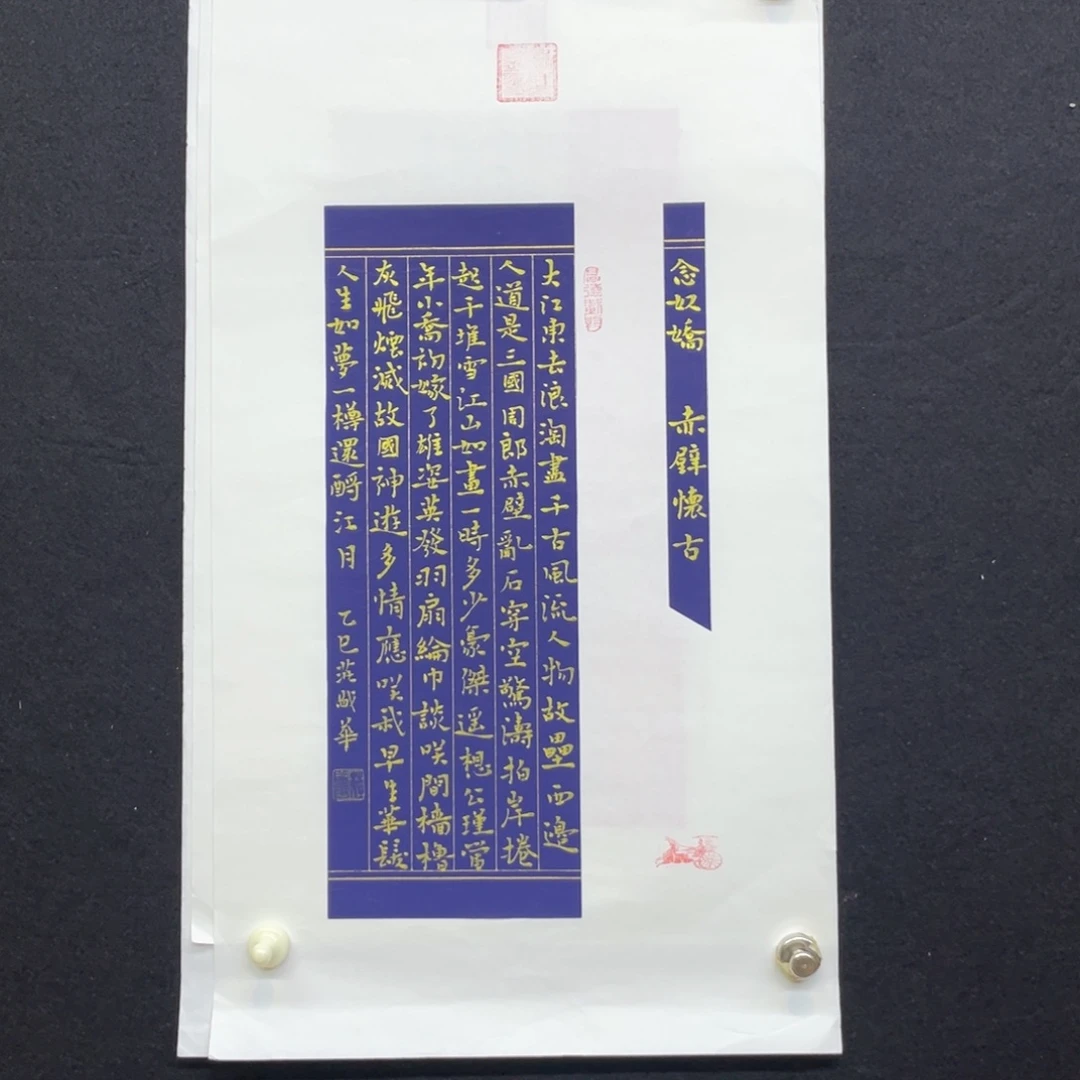 念奴嬌 赤壁懷古
大江東去浪淘盡千古風流人物故壘西邊
人道是三國周郎赤壁亂石穿空驚濤拍岸捲
起千堆雪江山如畫一時多少豪傑遥想公瑾當
年小喬初嫁了雄姿英發羽扇綸巾談咲間檣櫓
灰飛煙滅故國神遊多情應咲我早生華髮
人生如夢一樽還酹江月 乙巳 華